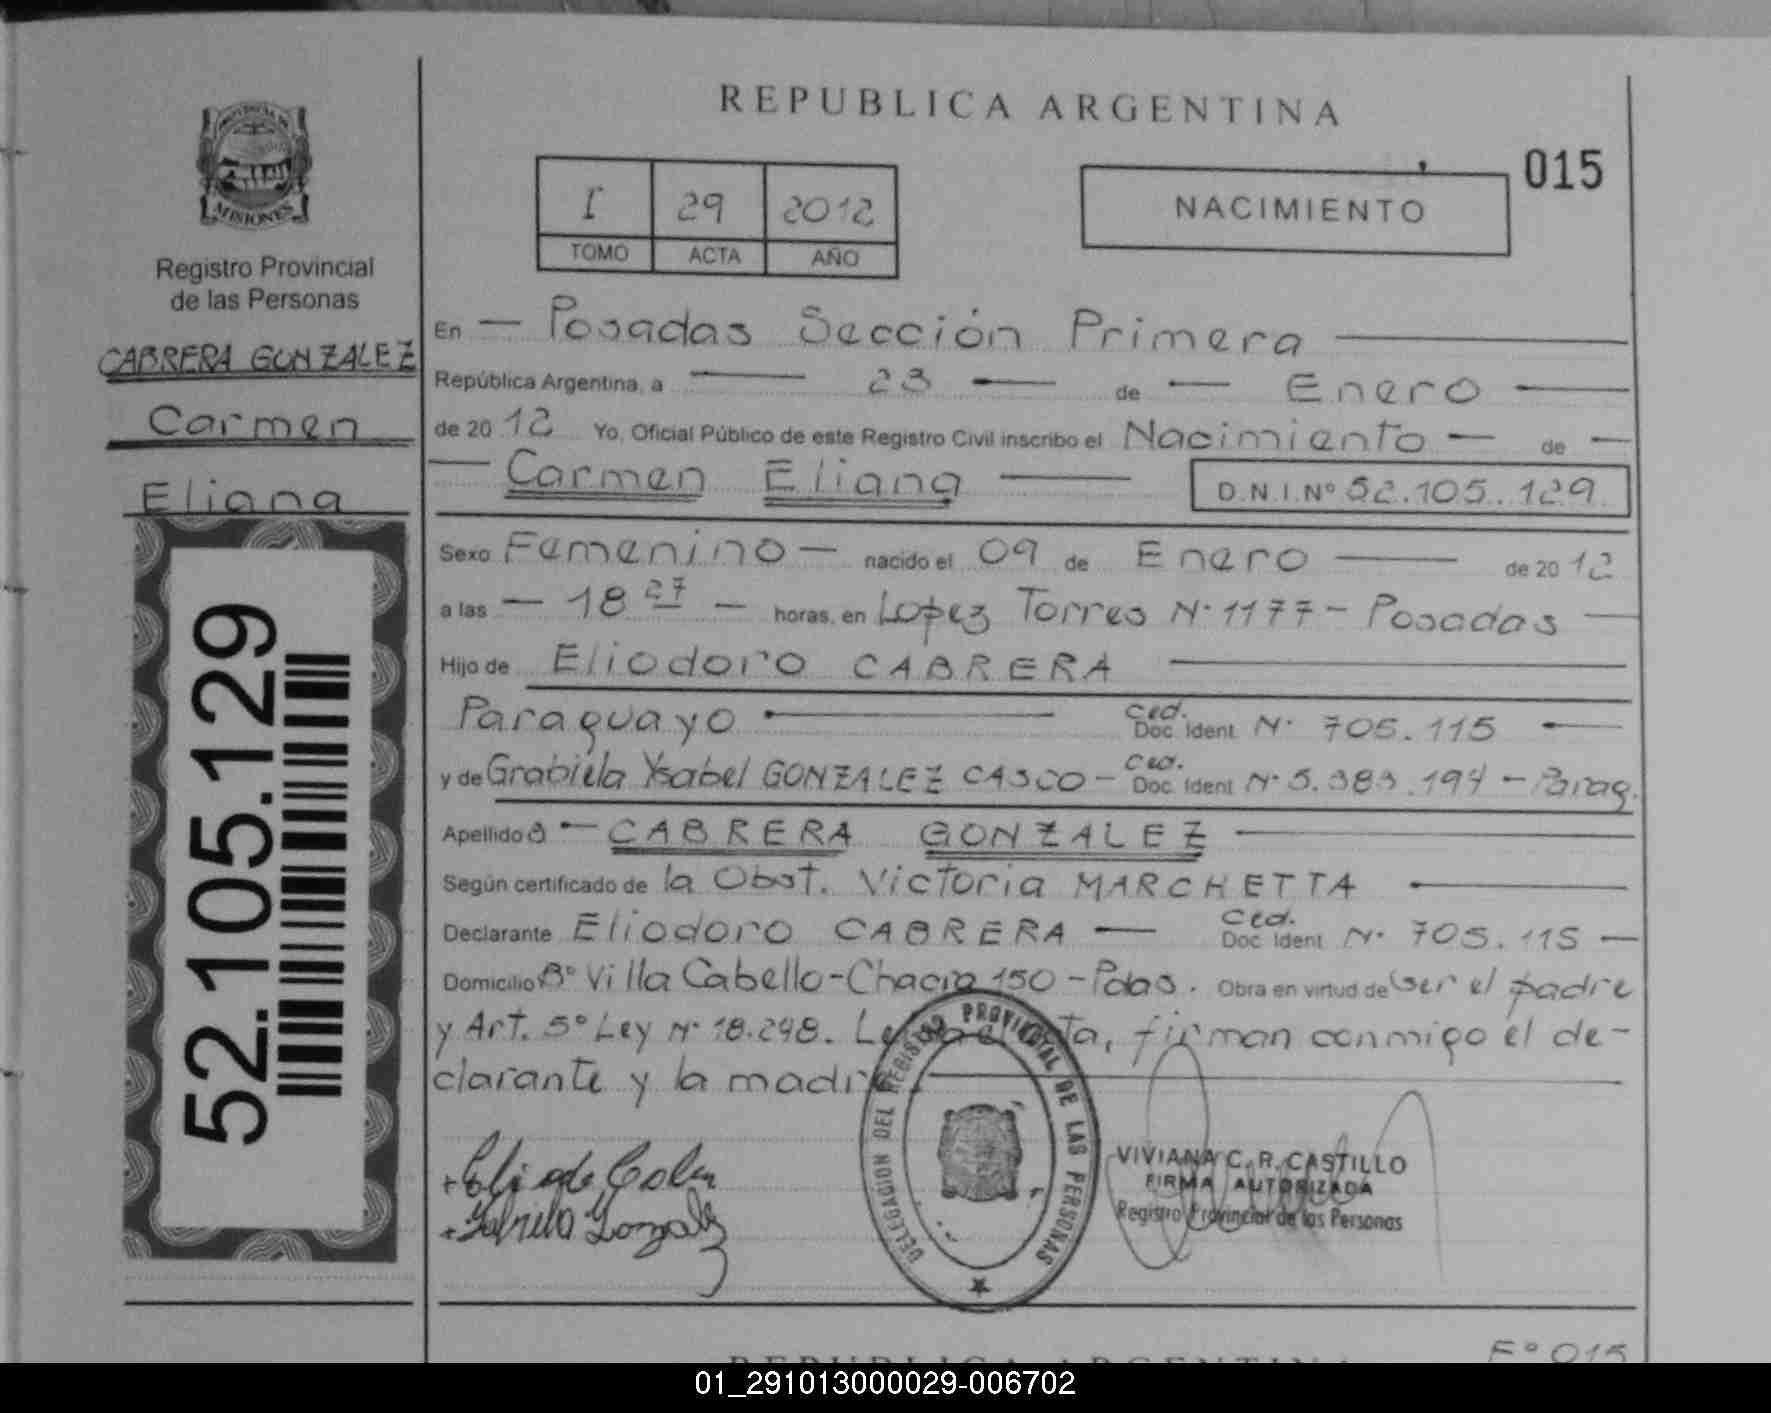 REPUBLICA ARGENTINA
015
I 29 2012
TOMO ACTA AÑO
NACIMIENTO
PROVINCIA DE
MISIONES
Registro Provincial
de las Personas
CABRERA GONZALEZ
Carmen
Eliana
52.105.129
En — Posadas Sección Primera —
República Argentina, a — 23 — de — Enero —
de 20 12 Yo, Oficial Público de este Registro Civil inscribo el Nacimiento — de —
— Carmen Eliana — D.N.I.Nº 52.105.129
Sexo Femenino — nacido el 09 de Enero — de 20 12
a las — 18 27 — horas, en Lopez Torres Nº 1177 - Posadas —
Hijo de Eliodoro CABRERA —
Paraguayo — Ced. Doc. Ident. Nº 705.115 —
y de Grabiela Ysabel GONZALEZ CASCO - Ced. Doc. Ident Nº 5.383.194 - Parag.
Apellido s — CABRERA GONZALEZ —
Según certificado de la Obst. Victoria MARCHETTA —
Declarante Eliodoro CABRERA — Ced. Doc. Ident Nº 705.115 —
Domicilio Bº Villa Cabello - Chacra 150 - Pdas. Obra en virtud de ser el padre
y Art. 5º Ley Nº 18.248. Leída el acta, firman conmigo el de-
clarante y la madre. —
DELEGACION DEL REGISTRO PROVINCIAL DE LAS PERSONAS
VIVIANA C. R. CASTILLO
FIRMA AUTORIZADA
Registro Provincial de las Personas
Gabriela Gonzalez
REPUBLICA ARGENTINA
Fº 015
01_291013000029-006702